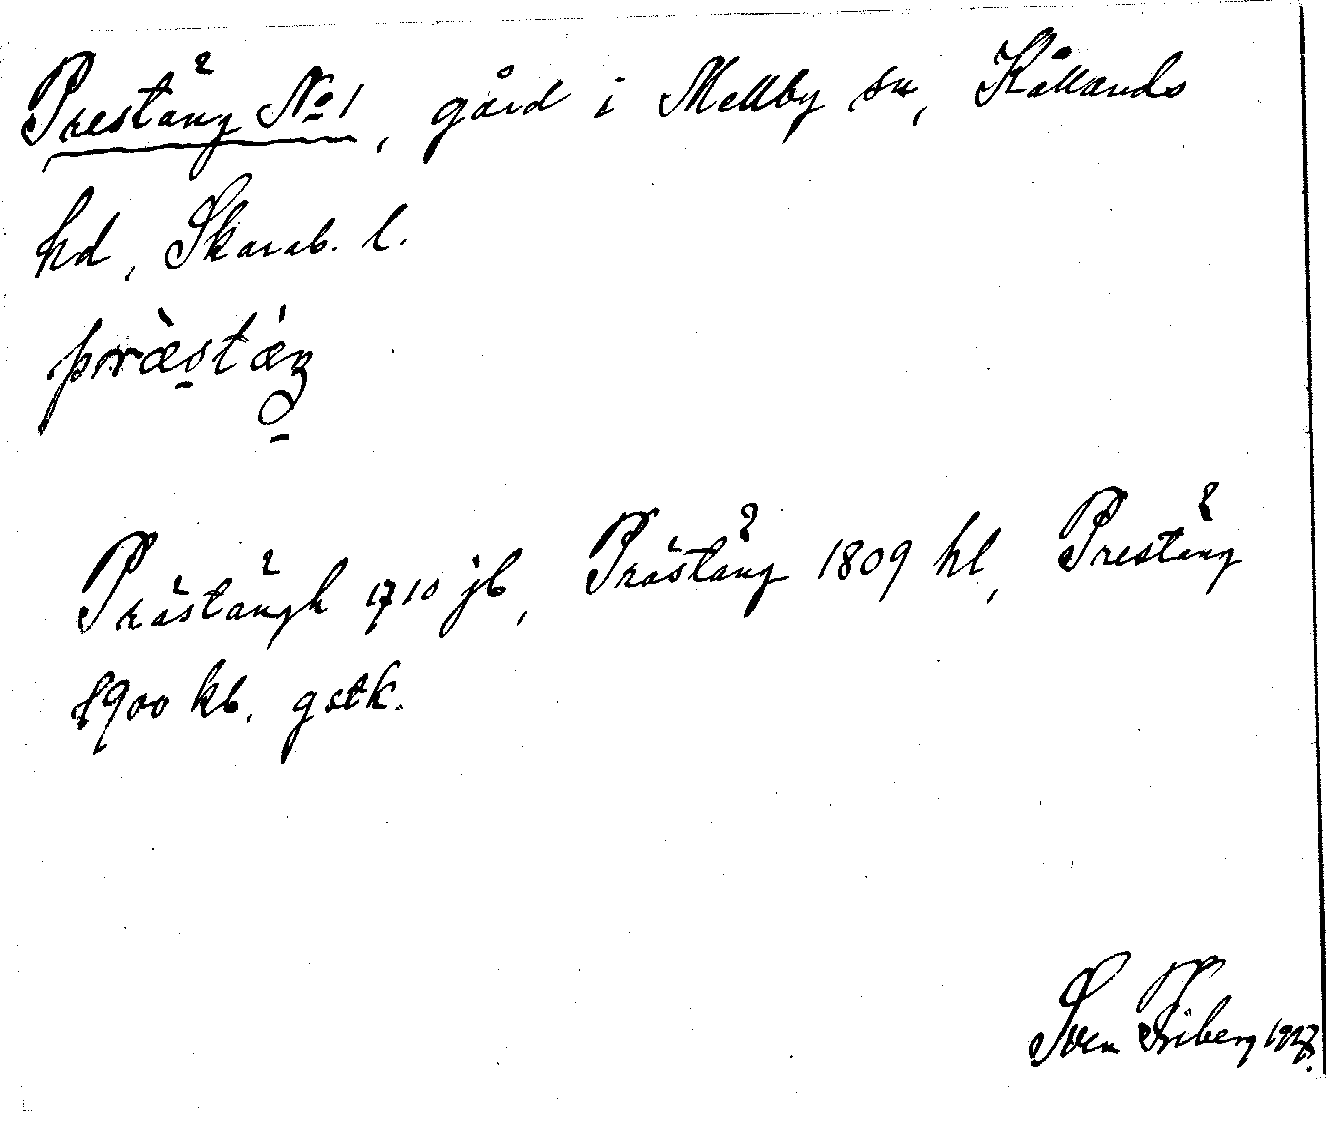 Prestäng No 1, gård i Mellby sn, Kållands
hd, Skarab. l.
præ̀stæ̀ŋ
Prästängh 1710 jb, Prästäng 1809 hl, Prestäng
1900 kb. gstk.
Sven Friberg 1927.